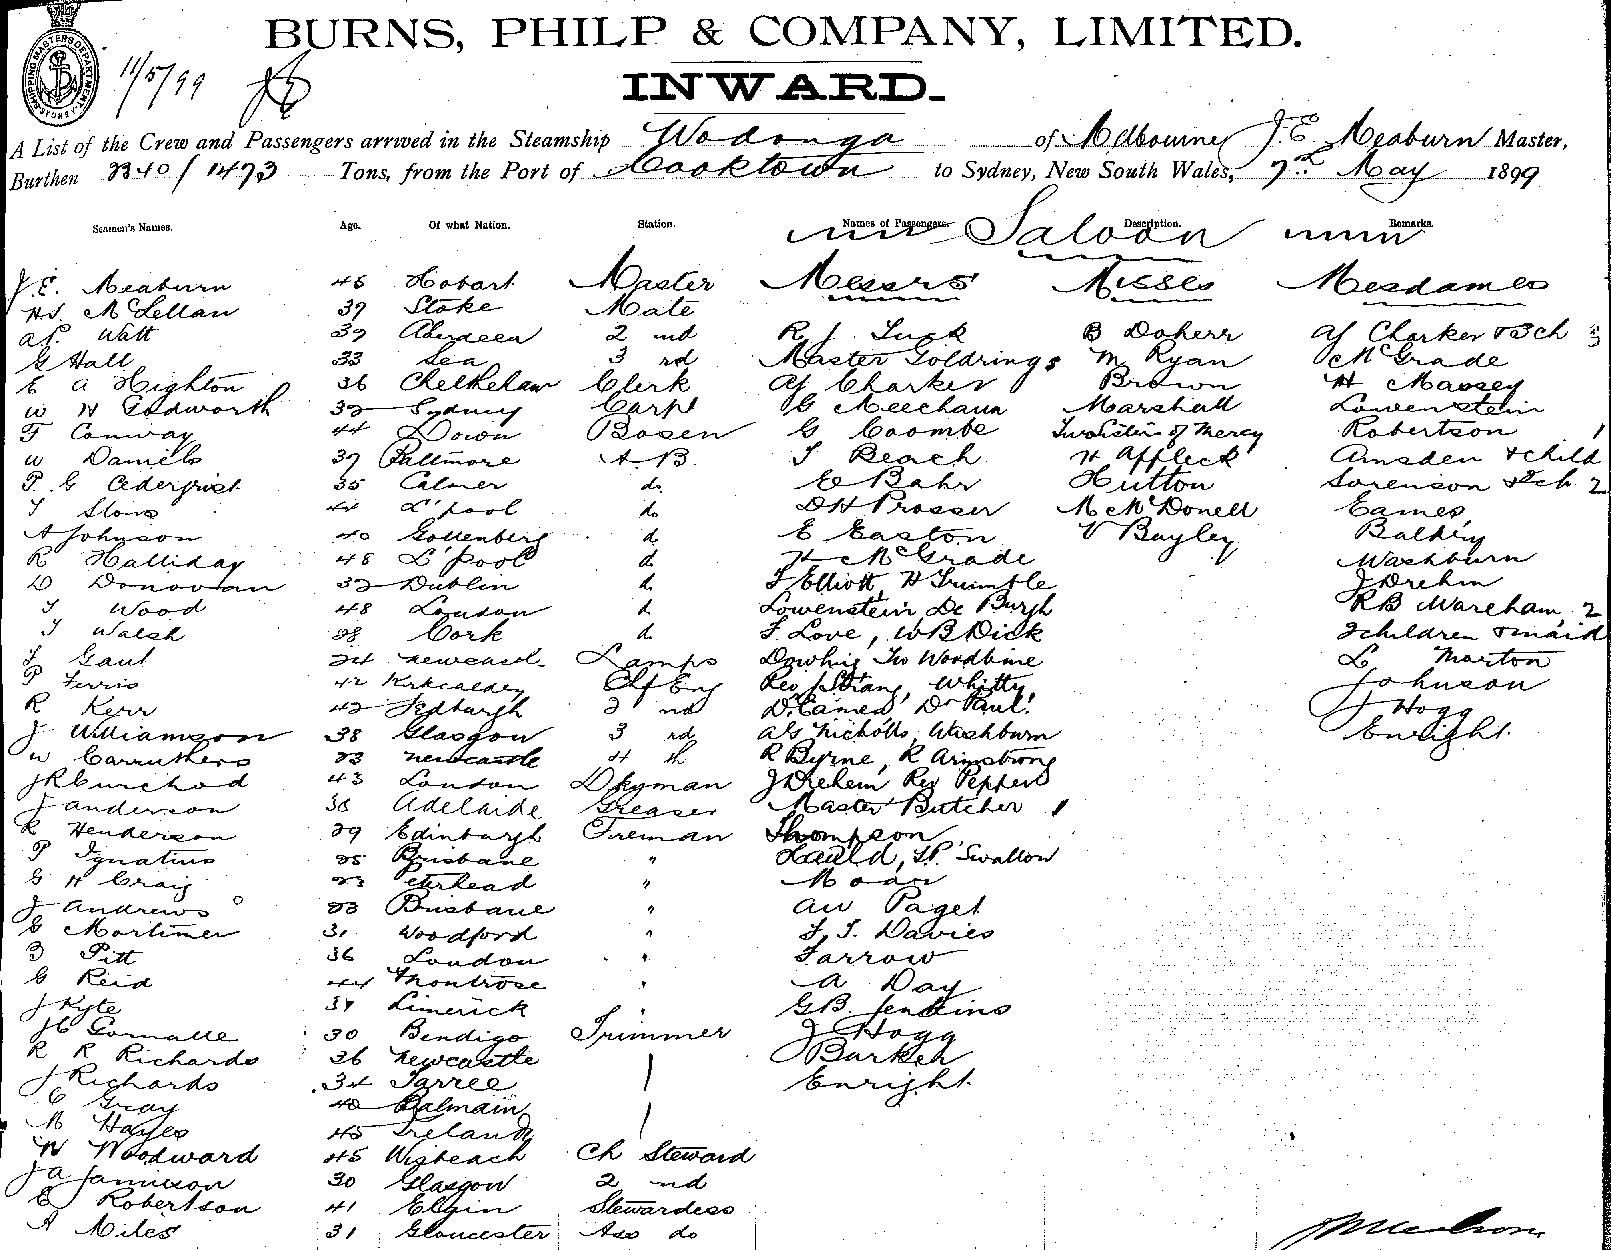 BURNS, PHILP & COMPANY, LIMITED.
11/5/99
INWARD.
A List of the Crew and Passengers arrived in the Steamship Wodonga of Melbourne J. E. Meaburn Master,
Burthen 2340/1473 Tons, from the Port of Cooktown to Sydney, New South Wales, 7th May 1899
Seamen's Names. Age. Of what Nation. Station. Names of Passengers. Saloon Description. Remarks.
J. E. Meaburn 45 Hobart Master Messrs Misses Mesdames
McLellan 39 Stoke Mate
Watt 39 Aberdeen 2 nd R J Tuck B Doherr AJ Charker & 3 ch 3
G Hall 33 Sea 3 rd Master Goldrings M Ryan McGrade
E A Highton 36 Clerk AJ Charker Brown H Massey
W H 32 Sydney Carp G Meechaun Marshall Lowenstein
F Conway 44 Down Bosen G Coombe Two Sisters of Mercy Robertson 1
W Daniels 39 A.B. T Beach H Affleck Amsden & child
P. G 35 Calmer do E Bahr Hutton Sorenson & 2 ch 2
44 L'pool do D H Prosser M McDonell Eames
A Johnson 40 d E Easton V Bayley
R Halliday 48 L'pool d H McGrade Washburn
D Donovan 32 Dublin d T Elliott, H Trumble J Drehm
T Wood 48 London d Lowenstein, De Burgh RB Wareham, 2
T Walsh 28 Cork d F. Love, W B Dick 2 children & maid
Gaul 24 Newcasl Lamps Dowling Two Woodbine L Marton
P Ferris 42 Kirkcaldy Cf Eng Rev J Strang, Whitty, Johnson
R Kerr 42 2 nd D. Eames Dr Paul. J Hogg
J Williamson 38 Glasgow 3 rd AG Nicholls, Washburn Enright.
W Carruthers 23 Newcastle 4 th R Byrne, R Armstrong
43 London Dkyman J Drehem Rev Pepper
J Anderson 38 Adelaide Greaser Master Butcher 1
R Henderson 29 Edinburgh Fireman Thompson
P Ignatius 25 Brisbane " Swallow
G H Craig 22 Peterhead " Moar
J Andrews 23 Brisbane " AW Paget
G Mortimer 31 Woodford " F. J. Davies
Pitt 36 London " Farrow
G Reid 44 Montrose " A Day
J Kyte 37 Limerick G B. Jenkins
30 Bendigo Trimmer J Hogg
R R Richards 26 Newcastle
J Richards 34 Tarree Enright.
C Gray 40 Balmain
M Hayes 45 Ireland
W Woodward 45 Wisbeach Ch Steward
J A Jamieson 30 Glasgow 2 nd
E Robertson 41 Elgin Stewardess
A Miles 31 Gloucester Ass do